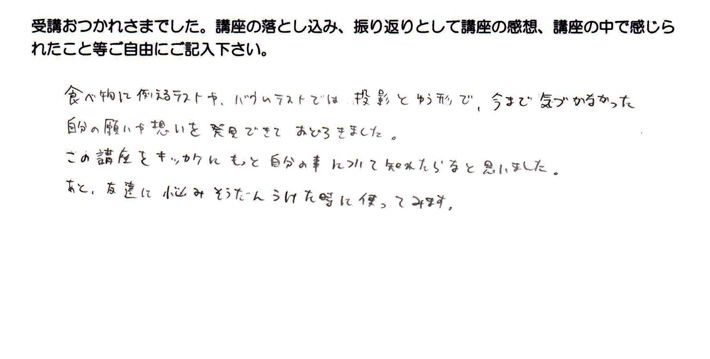 受講おつかれさまでした。講座の落とし込み、振り返りとして講座の感想、講座の中で感じら
れたこと等ご自由にご記入下さい。
食べ物に例えるテストや、バウムテストでは投影とゆう形で、今まで気づかなかった
自分の願いや想いを発見できておどろきました。
この講座をキッカケにもっと自分の事について知れたらなと思いました。
あと、友達に悩みそうだんうけた時に使ってみます。